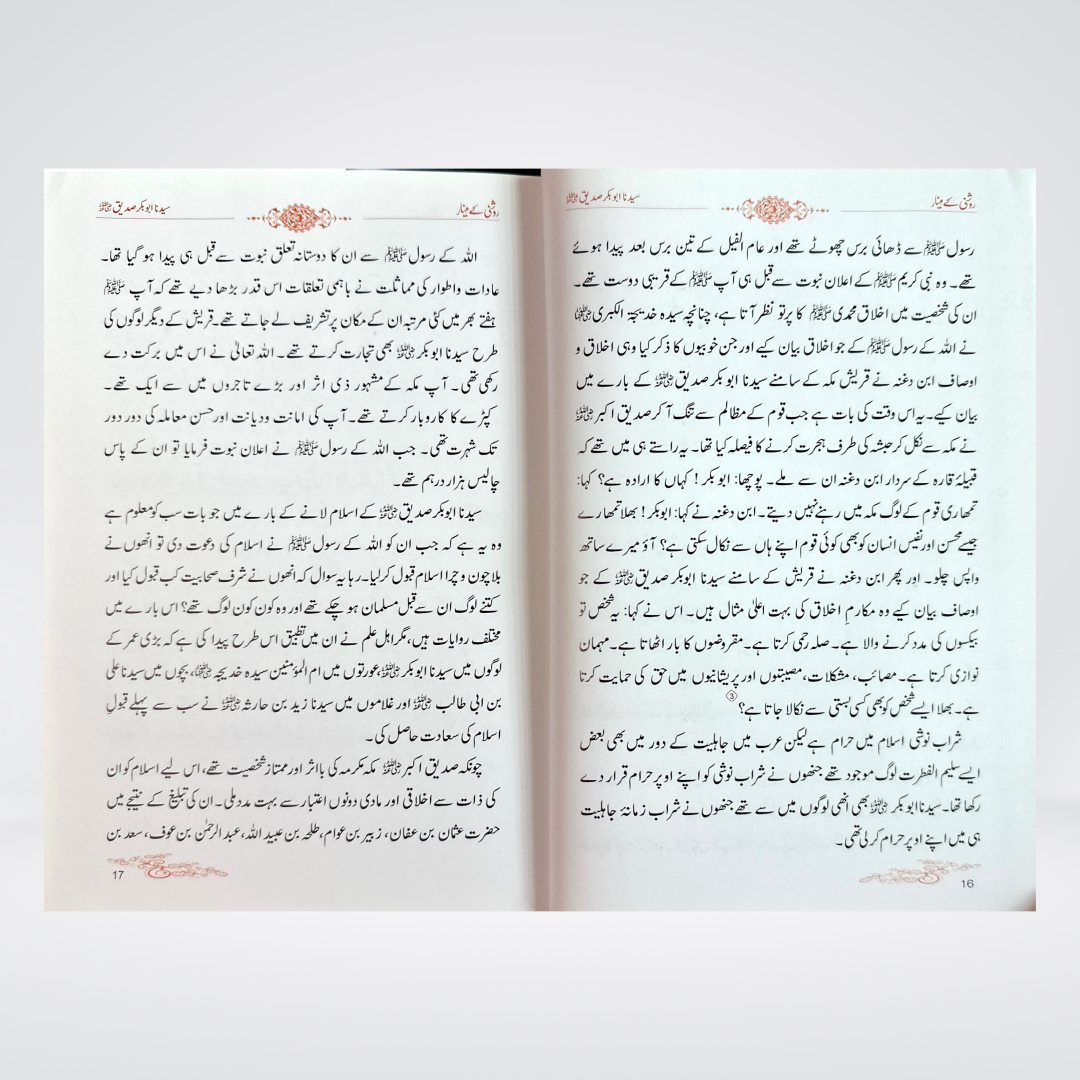 روشنی کے مینار
سیدنا ابوبکر صدیق رضی اللہ عنہ
رسول ﷺ سے ڈھائی برس چھوٹے تھے اور عام الفیل کے تین برس بعد پیدا ہوئے
تھے۔ وہ نبی کریم ﷺ کے اعلان نبوت سے قبل ہی آپ ﷺ کے قریبی دوست تھے۔
ان کی شخصیت میں اخلاق محمدی ﷺ کا پرتو نظر آتا ہے، چنانچہ سیدہ خدیجۃ الکبریٰ رضی اللہ عنہا
نے اللہ کے رسول ﷺ کے جو اخلاق بیان کیے اور جن خوبیوں کا ذکر کیا وہی اخلاق و
اوصاف ابن دغنہ نے قریش مکہ کے سامنے سیدنا ابو بکر صدیق رضی اللہ عنہ کے بارے میں
بیان کیے۔ یہ اس وقت کی بات ہے جب قوم کے مظالم سے تنگ آ کر صدیق اکبر رضی اللہ عنہ
نے مکہ سے نکل کر حبشہ کی طرف ہجرت کرنے کا فیصلہ کیا تھا۔ یہ راستے ہی میں تھے کہ
قبیلۂ قارہ کے سردار ابن دغنہ ان سے ملے۔ پوچھا: ابوبکر! کہاں کا ارادہ ہے؟ کہا:
تمھاری قوم کے لوگ مکہ میں رہنے نہیں دیتے۔ ابن دغنہ نے کہا: ابوبکر! بھلا تمھارے
جیسے محسن اور نفیس انسان کو بھی کوئی قوم اپنے ہاں سے نکال سکتی ہے؟ آؤ میرے ساتھ
واپس چلو۔ اور پھر ابن دغنہ نے قریش کے سامنے سیدنا ابوبکر صدیق رضی اللہ عنہ کے جو
اوصاف بیان کیے وہ مکارمِ اخلاق کی بہت اعلیٰ مثال ہیں۔ اس نے کہا: یہ شخص تو
بیکسوں کی مدد کرنے والا ہے۔ صلہ رحمی کرتا ہے۔ مقروضوں کا بار اٹھاتا ہے۔ مہمان
نوازی کرتا ہے۔ مصائب، مشکلات، مصیبتوں اور پریشانیوں میں حق کی حمایت کرتا
ہے۔ بھلا ایسے شخص کو بھی کسی بستی سے نکالا جاتا ہے؟ ③
شراب نوشی اسلام میں حرام ہے لیکن عرب میں جاہلیت کے دور میں بھی بعض
ایسے سلیم الفطرت لوگ موجود تھے جنھوں نے شراب نوشی کو اپنے اوپر حرام قرار دے
رکھا تھا۔ سیدنا ابوبکر رضی اللہ عنہ بھی انھی لوگوں میں سے تھے جنھوں نے شراب زمانۂ جاہلیت
ہی میں اپنے اوپر حرام کر لی تھی۔
16
روشنی کے مینار
سیدنا ابوبکر صدیق رضی اللہ عنہ
اللہ کے رسول ﷺ سے ان کا دوستانہ تعلق نبوت سے قبل ہی پیدا ہو گیا تھا۔
عادات و اطوار کی مماثلت نے باہمی تعلقات اس قدر بڑھا دیے تھے کہ آپ ﷺ
ہفتے بھر میں کئی مرتبہ ان کے مکان پر تشریف لے جاتے تھے۔ قریش کے دیگر لوگوں کی
طرح سیدنا ابوبکر رضی اللہ عنہ بھی تجارت کرتے تھے۔ اللہ تعالیٰ نے اس میں برکت دے
رکھی تھی۔ آپ مکہ کے مشہور ذی اثر اور بڑے تاجروں میں سے ایک تھے۔
کپڑے کا کاروبار کرتے تھے۔ آپ کی امانت و دیانت اور حسن معاملہ کی دور دور
تک شہرت تھی۔ جب اللہ کے رسول ﷺ نے اعلان نبوت فرمایا تو ان کے پاس
چالیس ہزار درہم تھے۔
سیدنا ابوبکر صدیق رضی اللہ عنہ کے اسلام لانے کے بارے میں جو بات سب کو معلوم ہے
وہ یہ ہے کہ جب ان کو اللہ کے رسول ﷺ نے اسلام کی دعوت دی تو انھوں نے
بلا چون و چرا اسلام قبول کر لیا۔ رہا یہ سوال کہ انھوں نے شرف صحابیت کب قبول کیا اور
کتنے لوگ ان سے قبل مسلمان ہو چکے تھے اور وہ کون کون لوگ تھے؟ اس بارے میں
مختلف روایات ہیں، مگر اہل علم نے ان میں تطبیق اس طرح پیدا کی ہے کہ بڑی عمر کے
لوگوں میں سیدنا ابوبکر رضی اللہ عنہ، عورتوں میں ام المؤمنین سیدہ خدیجہ رضی اللہ عنہا، بچوں میں سیدنا علی
بن ابی طالب رضی اللہ عنہ اور غلاموں میں سیدنا زید بن حارثہ رضی اللہ عنہ نے سب سے پہلے قبولِ
اسلام کی سعادت حاصل کی۔
چونکہ صدیق اکبر رضی اللہ عنہ مکہ مکرمہ کی بااثر اور ممتاز شخصیت تھے، اس لیے اسلام کو ان
کی ذات سے اخلاقی اور مادی دونوں اعتبار سے بہت مدد ملی۔ ان کی تبلیغ کے نتیجے میں
حضرت عثمان بن عفان، زبیر بن عوام، طلحہ بن عبید اللہ، عبدالرحمٰن بن عوف، سعد بن
17